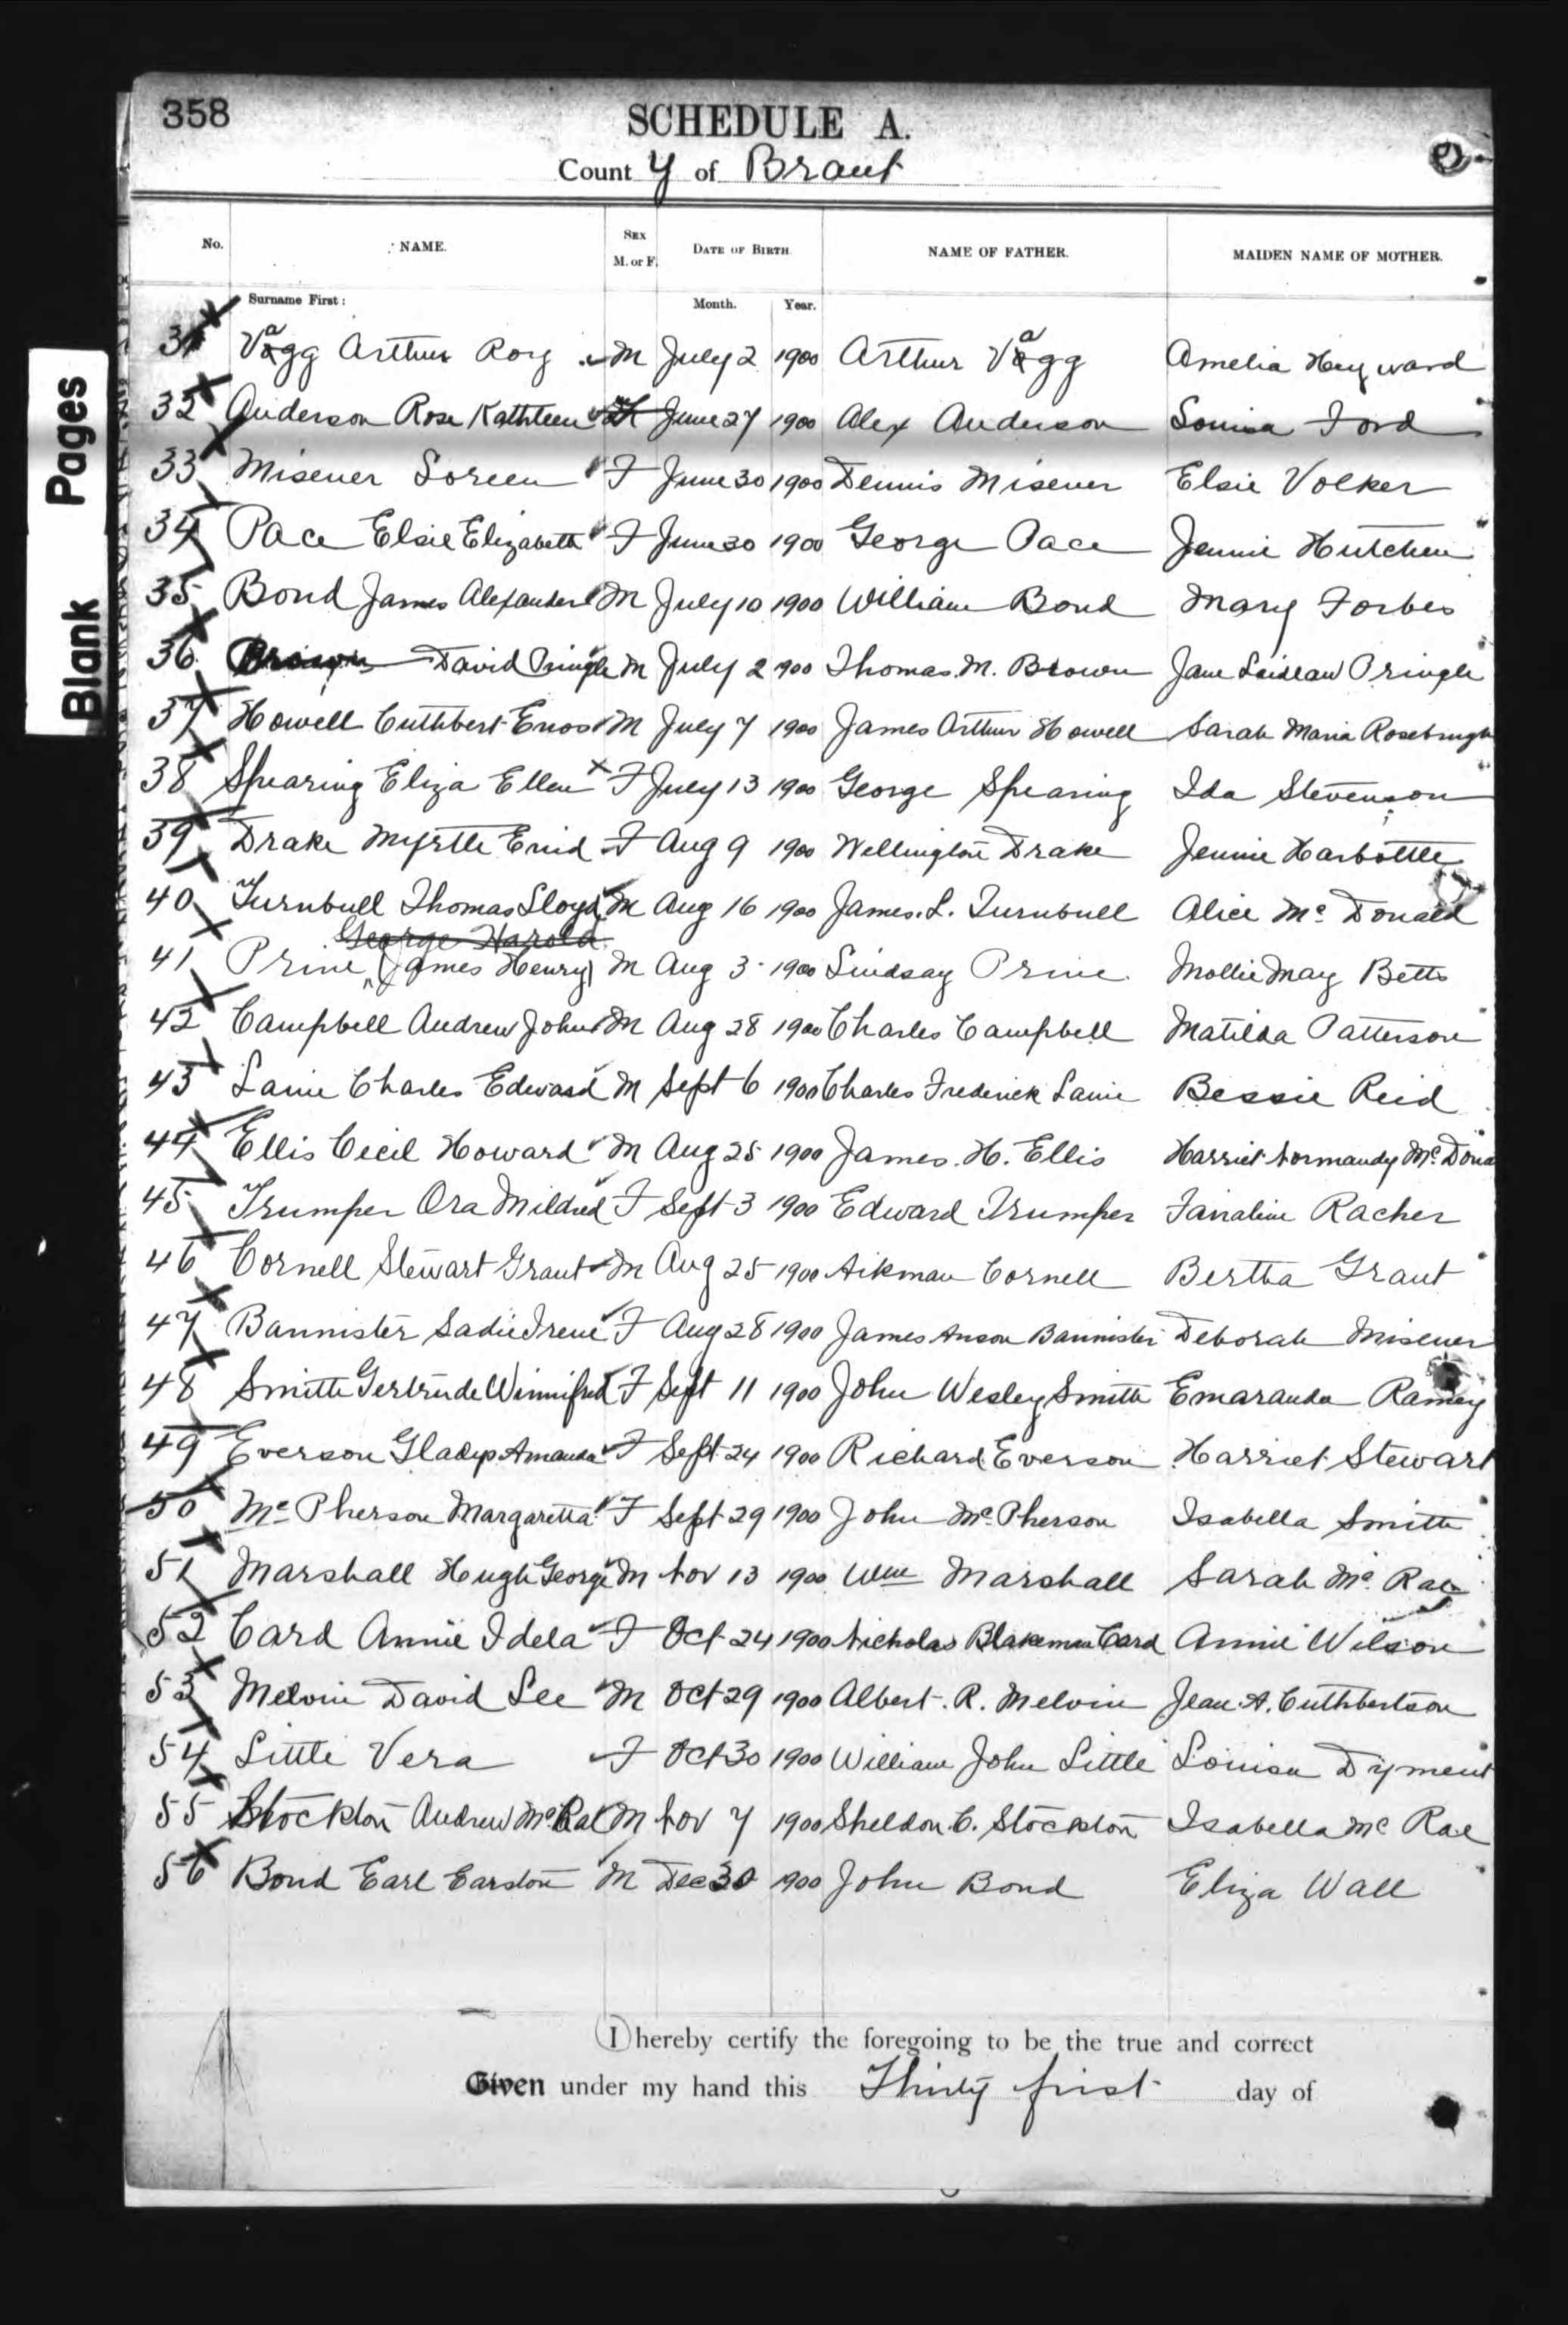 358
SCHEDULE A.
County of Brant
No. NAME. SEX M. or F. DATE OF BIRTH NAME OF FATHER. MAIDEN NAME OF MOTHER.
Surname First: Month. Year.
31 Vagg Arthur Roy M July 2 1900 Arthur Vagg Amelia Heyward
32 Anderson Rose Kathleen June 27 1900 Alex Anderson Louisa Ford
33 Misener Loreen F June 30 1900 Dennis Misener Elsie Volker
34 Pace Elsie Elizabeth F June 30 1900 George Pace Jennie Hutchen
35 Bond James Alexander M July 10 1900 William Bond Mary Forbes
36 Brown David Pringle M July 2 1900 Thomas. M. Brown Jane Laidlaw Pringle
37 Howell Cuthbert Enos M July 7 1900 James Arthur Howell Sarah Maria Rosebrugh
38 Spearing Eliza Ellen F July 13 1900 George Spearing Ida Stevenson
39 Drake Myrtle Enid F Aug 9 1900 Wellington Drake Jennie Harbottle
40 Turnbull Thomas Lloyd M Aug 16 1900 James. L. Turnbull Alice Mc Donald
George Harold
41 Prine (James Henry) M Aug 3 1900 Lindsay Prine Mollie May Betts
42 Campbell Andrew John M Aug 28 1900 Charles Campbell Matilda Patterson
43 Charles Edward M Sept 6 1900 Charles Frederick Bessie Reid
44 Ellis Cecil Howard M Aug 25 1900 James. H. Ellis Harriet Normandy Mc Dona
45 Trumper Ora Mildred F Sept 3 1900 Edward Trumper Racher
46 Cornell Stewart Grant M Aug 25 1900 Aikman Cornell Bertha Grant
47 Bannister Sadie Irene F Aug 28 1900 James Anson Bannister Deborah Misener
48 Smith Gertrude Winnifred F Sept 11 1900 John Wesley Smith Emaranda Ramey
49 Everson Gladys Amanda F Sept 24 1900 Richard Everson Harriet Stewart
50 Mc Pherson Margaretta F Sept 29 1900 John Mc Pherson Isabella Smith
51 Marshall Hugh George M Nov 13 1900 Wm Marshall Sarah Mc Rae
52 Card Annie Idela F Oct 24 1900 Nicholas Blakeman Card Annie Wilson
53 Melvin David Lee M Oct 29 1900 Albert. R. Melvin Jean. A. Cuthbertson
54 Little Vera F Oct 30 1900 William John Little Louisa Dyment
55 Stockton Andrew Mc Rae M Nov 7 1900 Sheldon C. Stockton Isabella Mc Rae
56 Bond Earl Carston M Dec 30 1900 John Bond Eliza Wall
I hereby certify the foregoing to be the true and correct
Given under my hand this Thirty first day of
Blank Pages